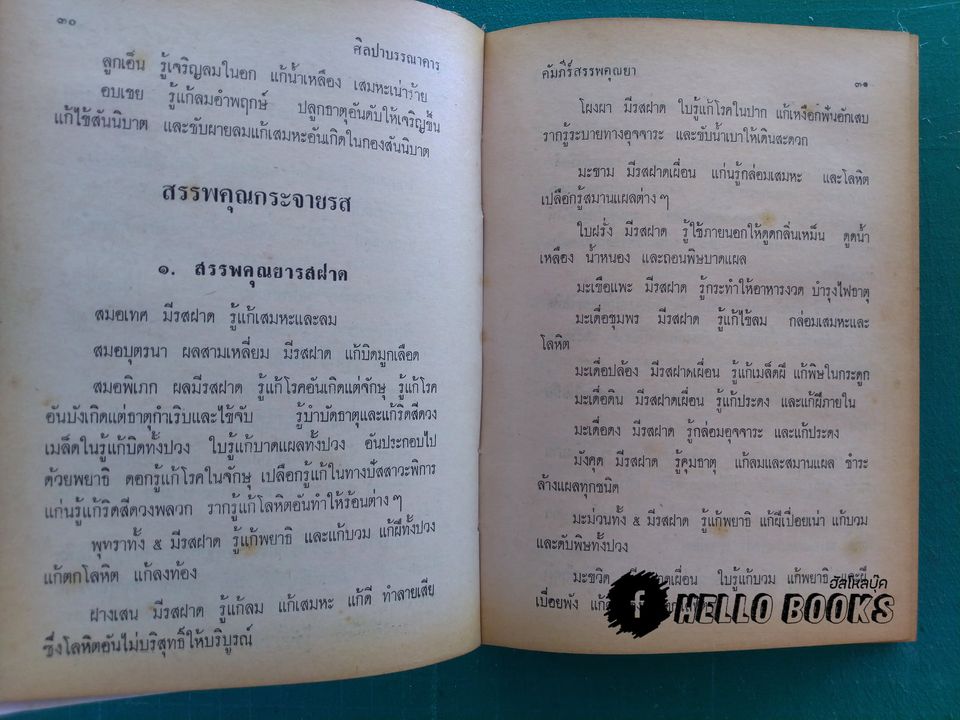 ๓๐
ศิลปาบรรณาคาร
ลูกเอ็น รู้เจริญลมในอก แก้น้ำเหลือง เสมหะเน่าร้าย
อบเชย รู้แก้ลมอำพฤกษ์ ปลูกธาตุอันดับให้เจริญขึ้น
แก้ไข้สันนิบาต และขับผายลมแก้เสมหะอันเกิดในกองสันนิบาต
สรรพคุณกระจายรส
๑. สรรพคุณยารสฝาด
สมอเทศ มีรสฝาด รู้แก้เสมหะและลม
สมอบุตรนา ผลสามเหลี่ยม มีรสฝาด แก้บิดมูกเลือด
สมอพิเภก ผลมีรสฝาด รู้แก้โรคอันเกิดแต่จักษุ รู้แก้โรค
อันบังเกิดแต่ธาตุกำเริบและไข้จับ รู้บำบัดธาตุและแก้ริดสีดวง
เมล็ดในรู้แก้บิดทั้งปวง ใบรู้แก้บาดแผลทั้งปวง อันประกอบไป
ด้วยพยาธิ ดอกรู้แก้โรคในจักษุ เปลือกรู้แก้ในทางปัสสาวะพิการ
แก่นรู้แก้ริดสีดวงพลวก รากรู้แก้โลหิตอันทำให้ร้อนต่าง ๆ
พุทราทั้ง ๕ มีรสฝาด รู้แก้พยาธิ และแก้บวม แก้ฝีทั้งปวง
แก้ตกโลหิต แก้ลงท้อง
ฝางเสน มีรสฝาด รู้แก้ลม แก้เสมหะ แก้ดี ทำลายเสีย
ซึ่งโลหิตอันไม่บริสุทธิ์ให้บริบูรณ์
คัมภีร์สรรพคุณยา
๓๑
โผงผา มีรสฝาด ใบรู้แก้โรคในปาก แก้เหงือกฟันอักเสบ
รากรู้ระบายทางอุจจาระ และขับน้ำเบาให้เดินสะดวก
มะขาม มีรสฝาดเฝื่อน แก่นรู้กล่อมเสมหะ และโลหิต
เปลือกรู้สมานแผลต่าง ๆ
ใบฝรั่ง มีรสฝาด รู้ใช้ภายนอกให้ดูดกลิ่นเหม็น ดูดน้ำ
เหลือง น้ำหนอง และถอนพิษบาดแผล
มะเขือแพะ มีรสฝาด รู้กระทำให้อาหารงวด บำรุงไฟธาตุ
มะเดื่อชุมพร มีรสฝาด รู้แก้ไข้ลม กล่อมเสมหะและ
โลหิต
มะเดื่อปล้อง มีรสฝาดเฝื่อน รู้แก้เมล็ดฝี แก้พิษในกระดูก
มะเดื่อดิน มีรสฝาดเฝื่อน รู้แก้ประดง และแก้ฝีภายใน
มะเดื่อดง มีรสฝาด รู้กล่อมอุจจาระ และแก้ประดง
มังคุด มีรสฝาด รู้คุมธาตุ แก้ลมและสมานแผล ชำระ
ล้างแผลทุกชนิด
มะม่วนทั้ง ๕ มีรสฝาด รู้แก้พยาธิ แก้ฝีเปื่อยเน่า แก้บวม
และดับพิษทั้งปวง
มะขวิด ฝาดเฝื่อน ใบรู้แก้บวม แก้พยาธิ และฝี
เปื่อยพัง
ฮัลโหลบุ๊ค
HELLO BOOKS